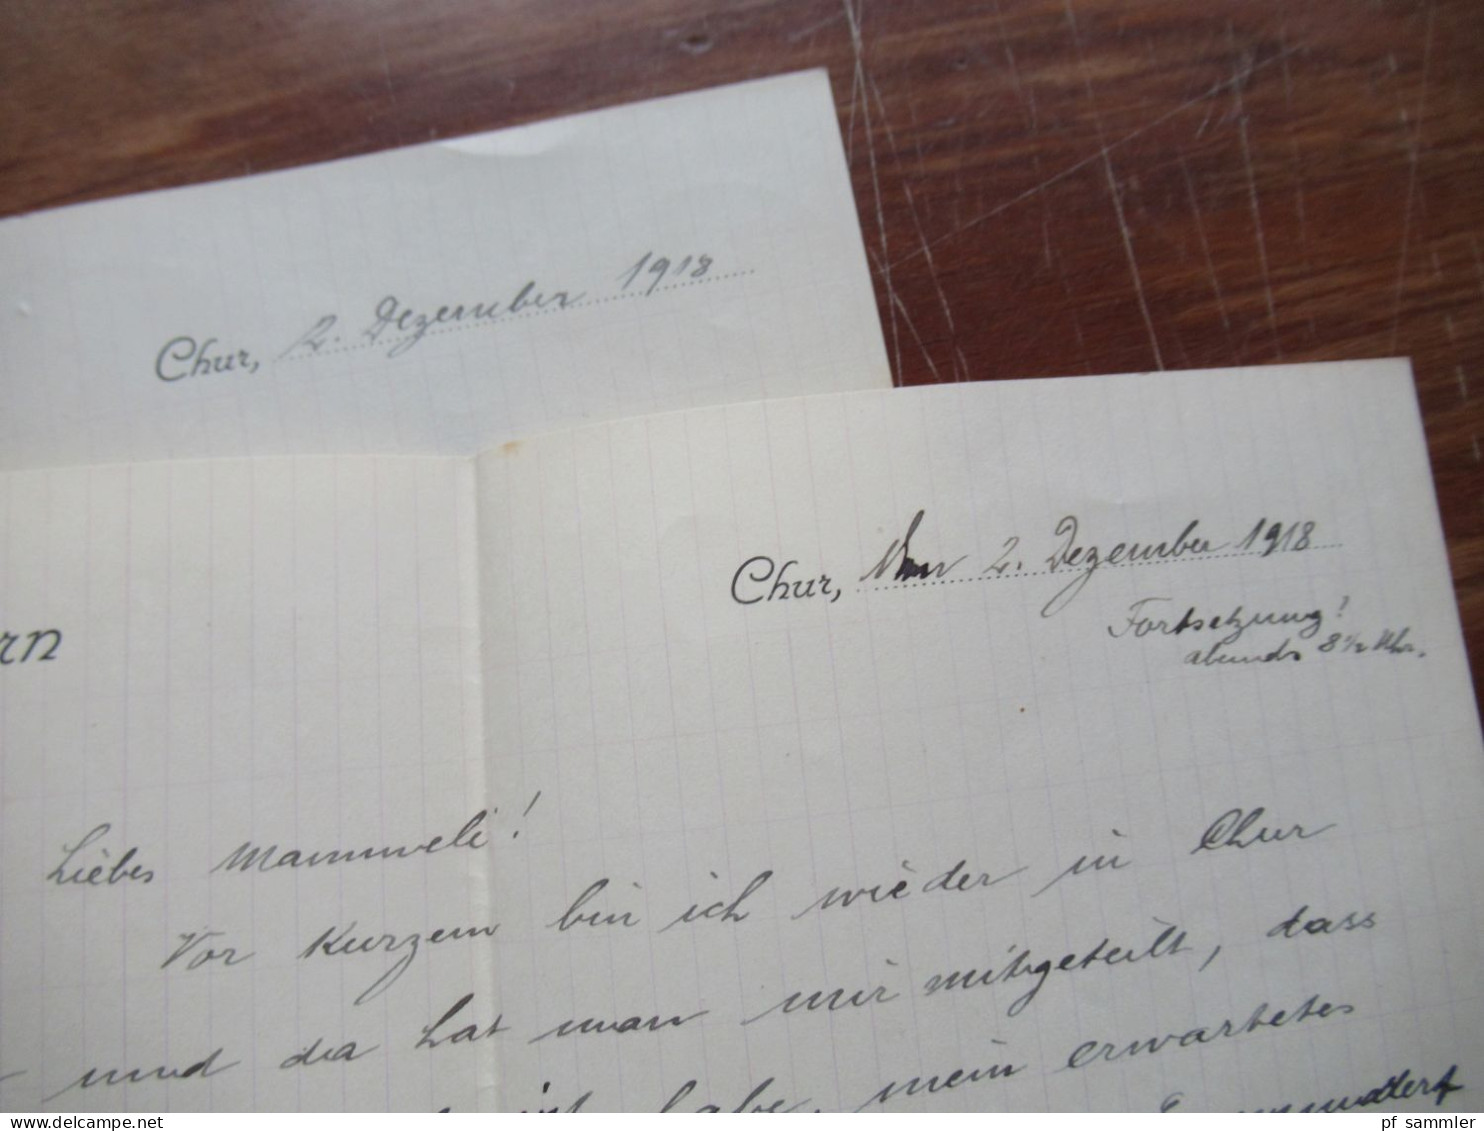 Chur, 2. Dezember 1918
Chur, 2. Dezember 1918
Fortsetzung!
abends 8½ Uhr.
rn
Liebes Mammeli!
Vor kurzem bin ich wieder in Chur
und da hat man mir mitgeteilt, dass
habe, mein erwartetes
www.delcampe.net
pf_sammler